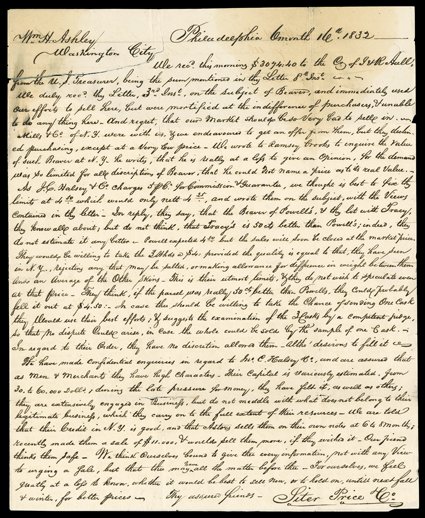 Wm H. Ashley Philadelphia 6 month 16th 1832
Washington City
We recd. this morning $3074.40 to the Cr of J & R Aull,
from the U. S. Treasurer, being the sum mentioned in thy Letter 8th Inst.
We duly recd. thy Letter, 3rd Inst., on the subject of Beaver, and immediately used
our efforts to sell here, but were mortified at the indifference of purchasers, & unable
to do any thing here. And regret, that our Market should be so very bad to sell in.
Mills & Co. of N.Y. were with us, & we endeavoured to get an offer from them, but they declin-
ed purchasing, except at a very low price. We wrote to Ramsey Crooks to enquire the value
of such Beaver at N.Y. he writes, that he is really at a loss to give an Opinion, for the demand
was so limited for all discription of Beaver, that he could not name a price as to its real value.
As J. C. Halsey & Co. charges 5 pCt for Commission & Guarantee, we thought it best to fix thy
limit at 4 which would only nett 4, and wrote them on the subject, with the views
contained in thy letter. In reply, they say, that the Beaver of Powell's, & thy lot with Tracy,
they know all about, but do not think, that Tracy's is 50 cts better than Powell's; indeed, they
do not estimate it any better. Powell expected 4 but the sales will soon be closed at the market price.
They would be willing to take the at $4 provided the quality is equal to that, they have seen
in N.Y., rejecting any that may be salted, or making allowance for difference in weight between them
and an Average of the Other Skins. This is their utmost limits, & they do not wish to speculate even
at that price. They think, if the parcel was really, 50 cts better than Powells, they could probably
sell it at $4.50. In case thee should be willing to take the Chance of sending One Cask
they would use their best efforts, & suggests the examination of the 3 Casks by a competent judge,
so that no dispute could arise, in case the whole could be sold by the sample of one Cask.
In regard to their Order, they have no discretion allowed them. Altho' desirous to fill it
We have made confidential enquiries in regard to Jos. C. Halsey & Co., and are assured that
as Men & Merchants they have high Character. Their Capital is variously estimated, from
to 60.000 Dolls, during the late pressure for money, they have felt it, as well as others;
they are extensively engaged in Business, but do not meddle with what does not belong to their
legitimate business, which they carry on to the full extent of their resources. We are told
that their Credit in N.Y. is good, and that hatters sell them on their own notes at 6 to 8 months,
recently made them a sale of $11.000 & would sell them more, if they wished it. Our friend
thinks them safe. We think Ourselves bound to give thee every information, not with any view
to urging a sale, but that thee may have all the matter before thee. For ourselves, we feel
greatly at a loss to know, whether it would be best to sell now, or to hold on, until next fall
& winter, for better prices
Thy assured friends
Siter Price & Co.